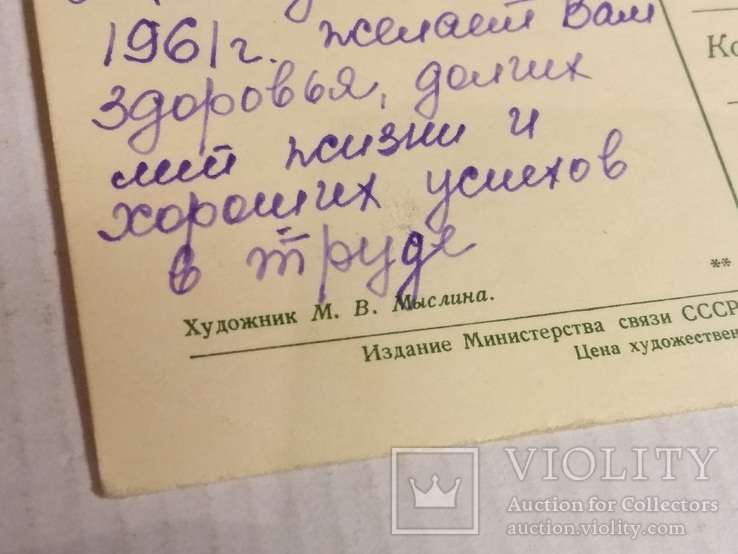 1961 г. желает Вам
здоровья, долгих
лет жизни и
хороших успехов
в труде
Ко
**
Художник М. В. Мыслина.
Издание Министерства связи СССР
Цена художествен
VIOLITY
Auction for Collectors
auction.violity.com